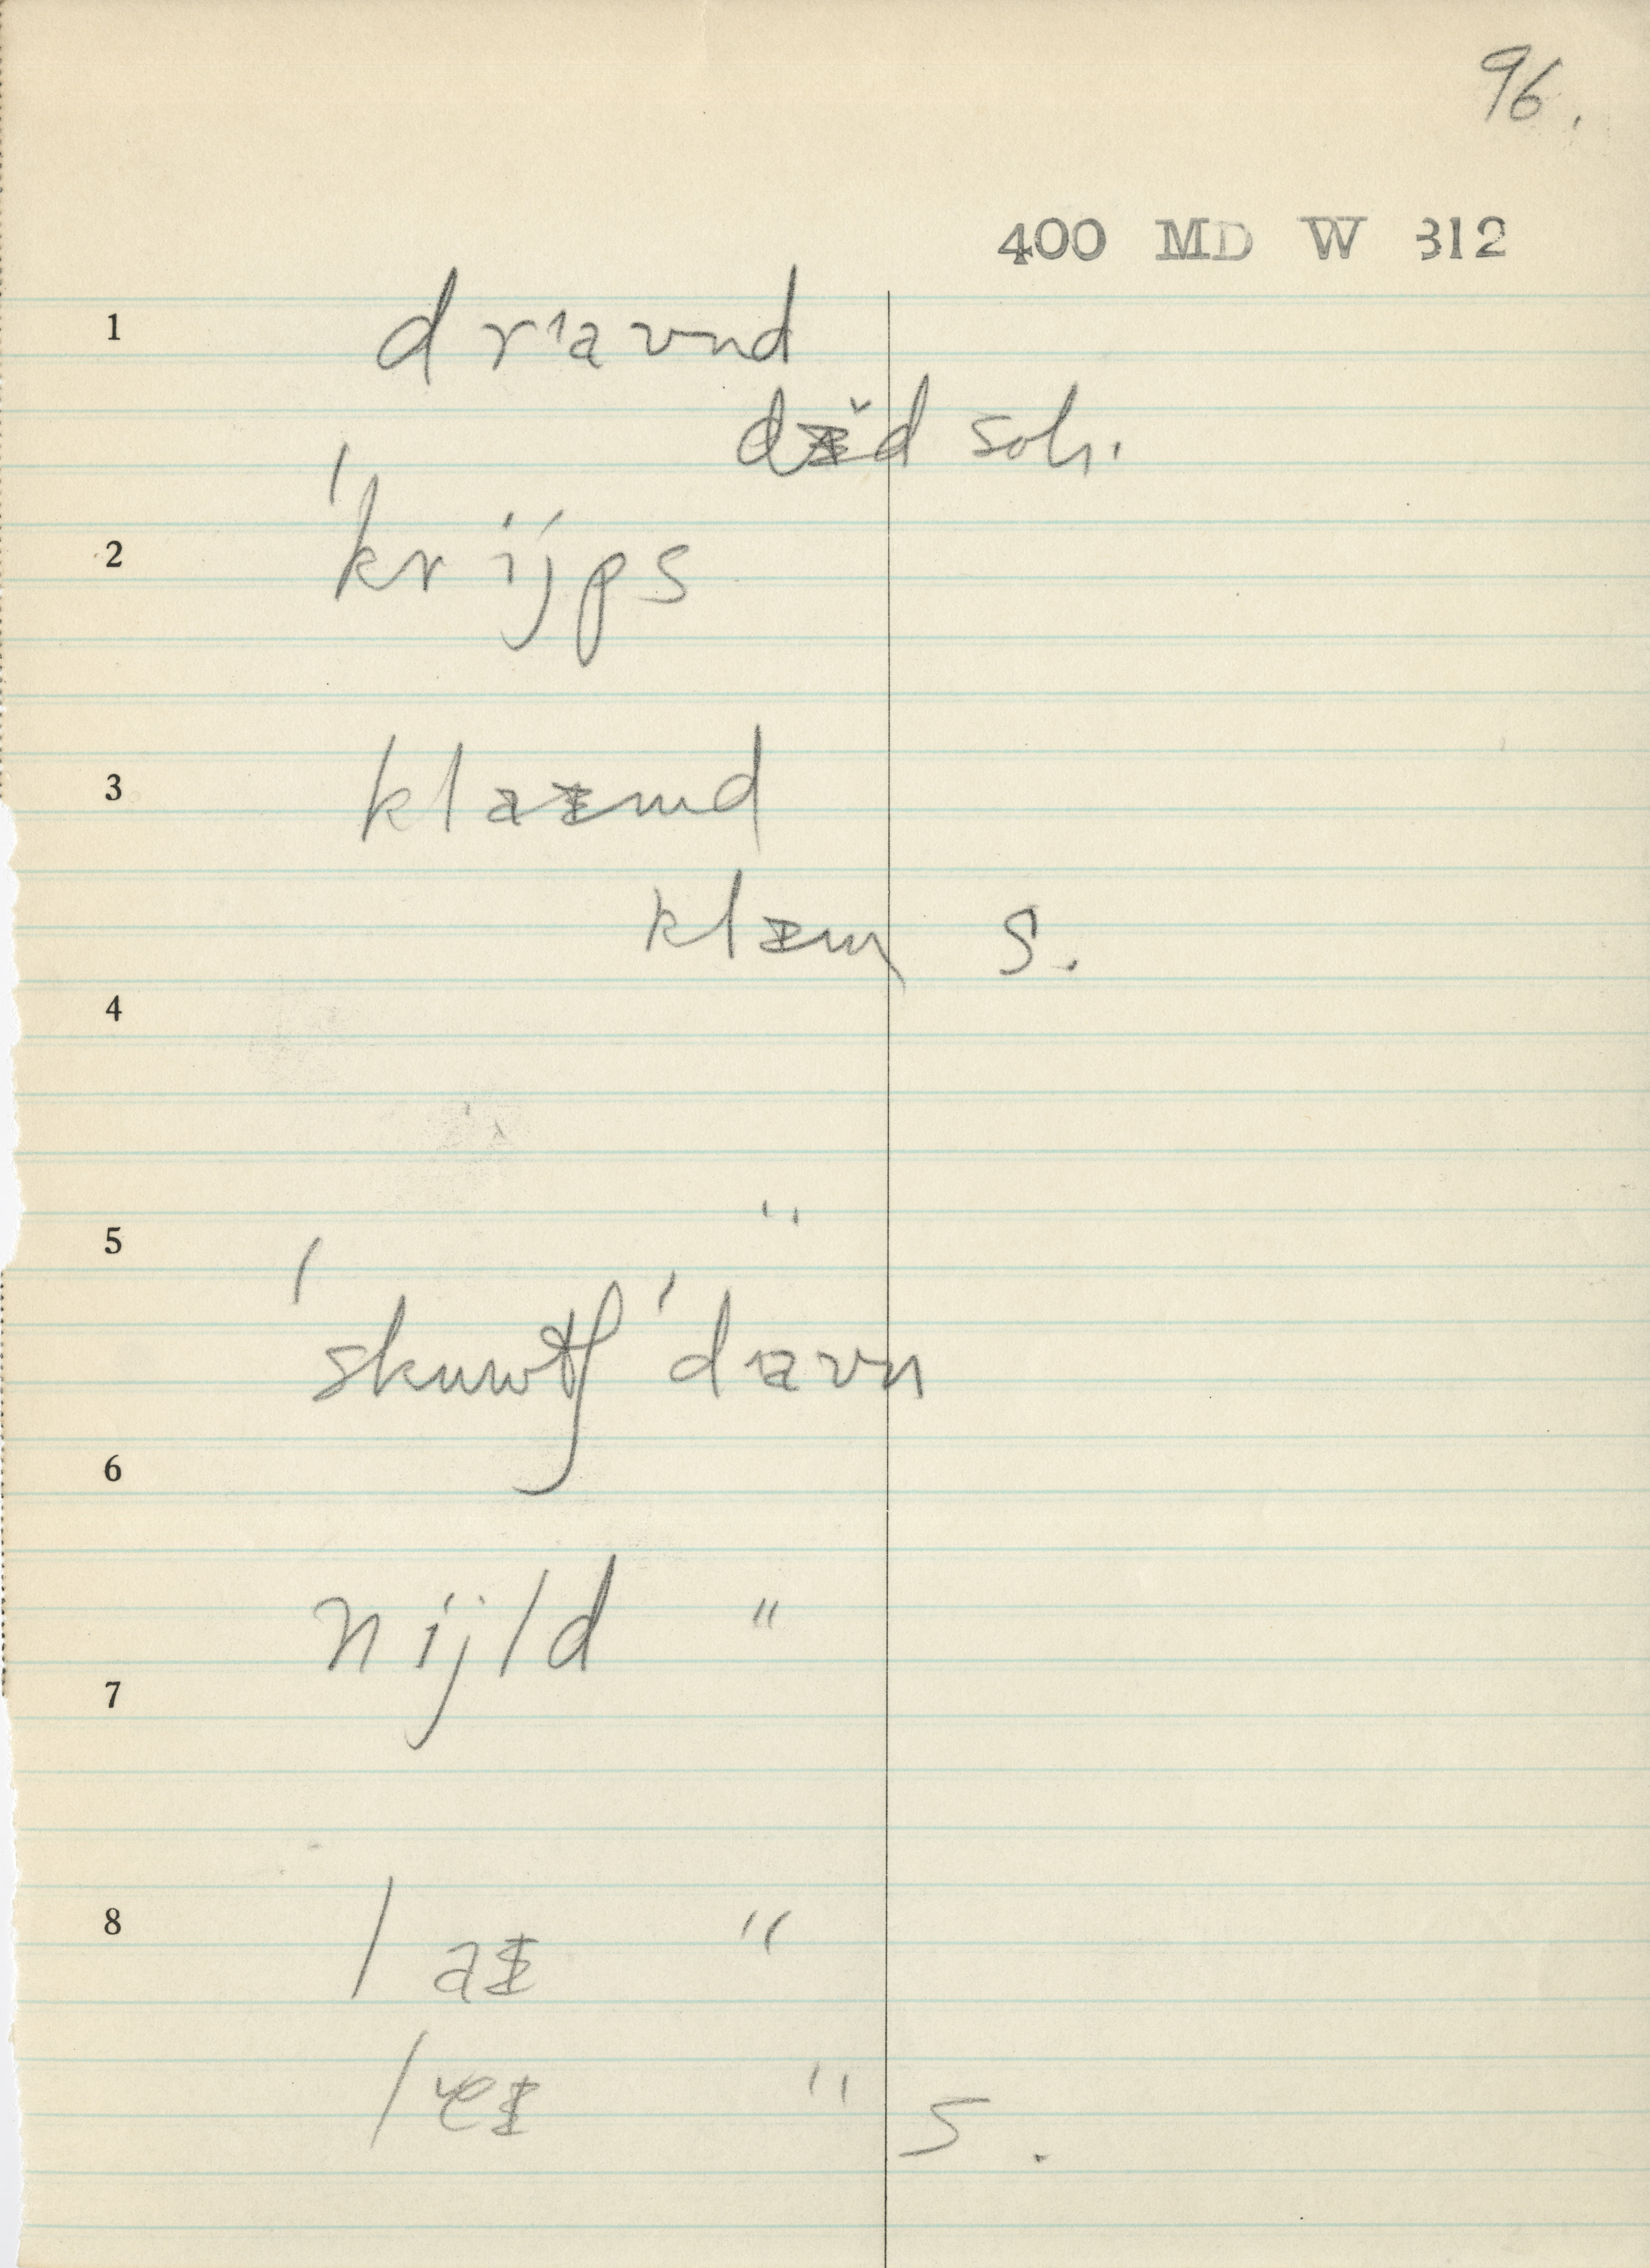 96.
400 MD W 312
1 drᶦaʊnd
dᵻ̌d soh.
2 ˈkrijps
3 klaᵻmd
klᵻm s.
4
5 "
ˈskuwtʃ ˈdaʊn
6
nijld "
7
8 laᵻ "
"  s.